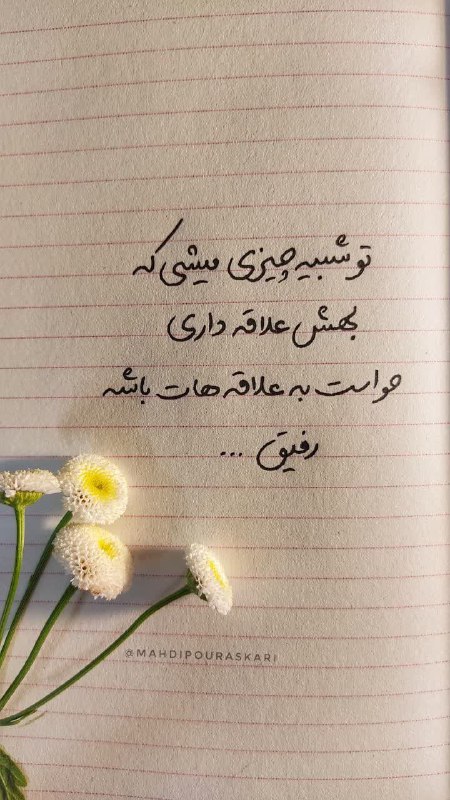 تو شبیه چیزی میشی که
بهش علاقه داری
حواست به علاقه هات باشه
رفیق ...
@MAHDIPOURASKARI